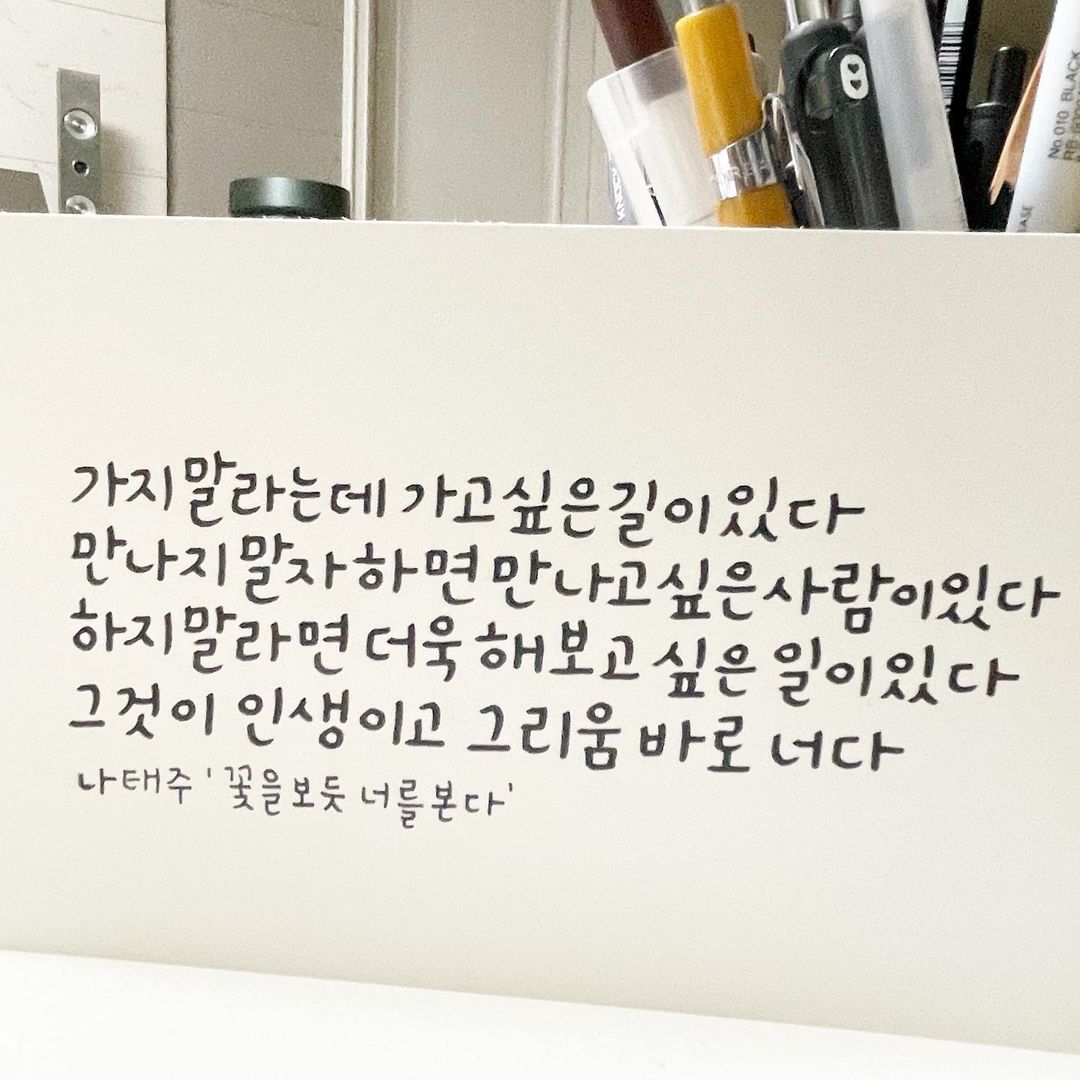 No.010 BLACK
가지말라는데 가고싶은길이있다
만나지말자하면 만나고싶은사람이있다
하지말라면 더욱 해보고 싶은 일이있다
그것이 인생이고 그리움 바로 너다
나태주 '꽃을보듯 너를본다'